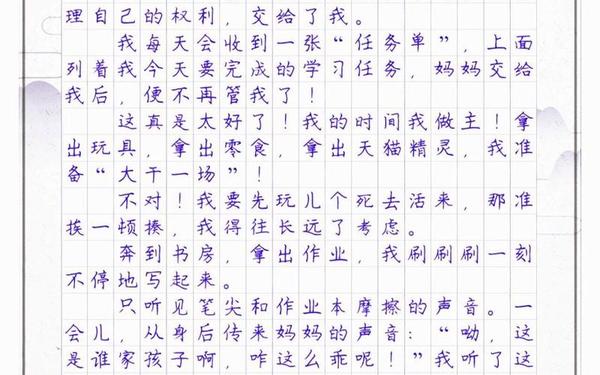 理自己的权利，交给了我。
我每天会收到一张“任务单”，上面
列着我今天要完成的学习任务，妈妈交给
我后，便不再管我了！
这真是太好了！我的时间我做主！拿
出玩具，拿出零食，拿出天猫精灵，我准
备“大干一场”！
不对！我要先玩儿个死去活来，那准
挨一顿揍，我得往长远了考虑。
奔到书房，拿出作业，我刷刷刷一刻
不停地写起来。
只听见笔尖和作业本摩擦的声音。一
会儿，从身后传来妈妈的声音：“呦，这
是谁家孩子啊，咋这么乖呢！”我听了这